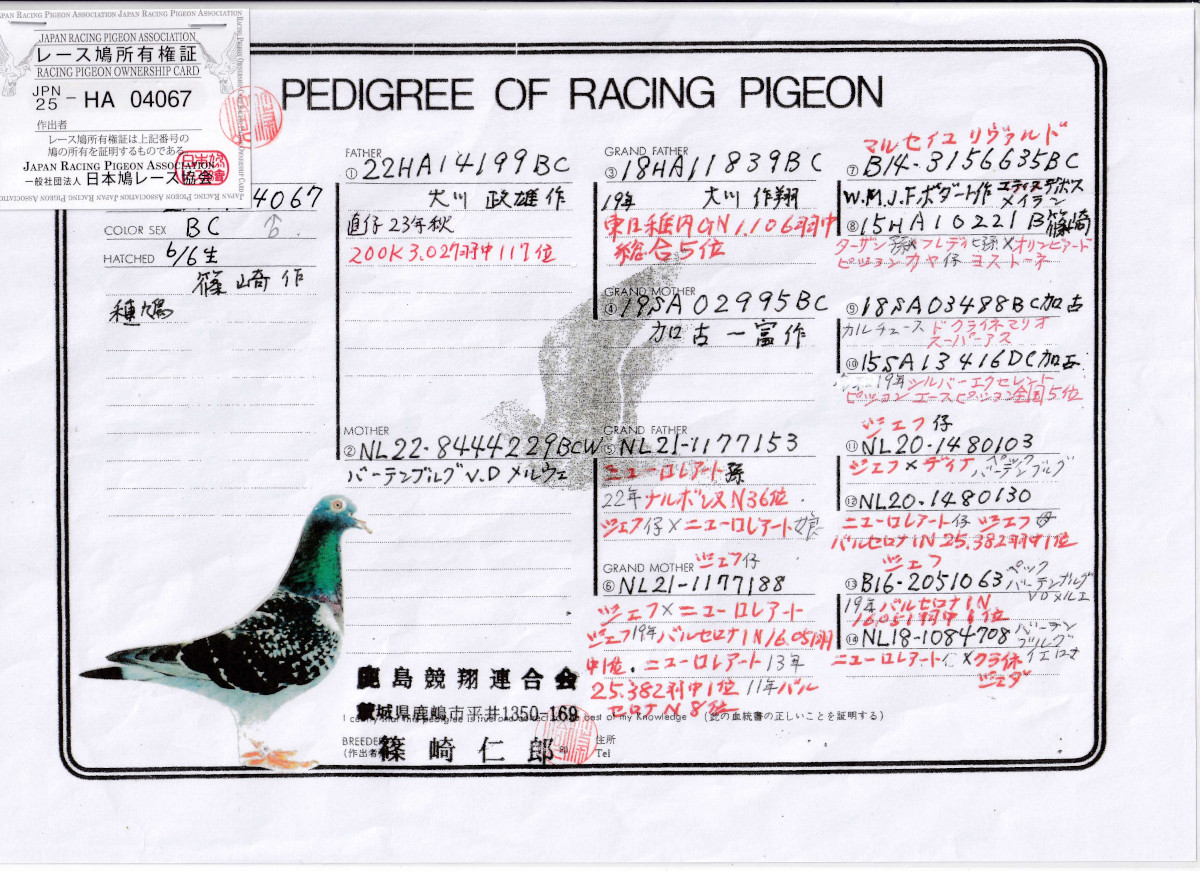 JAPAN RACING PIGEON ASSOCIATION JAPAN RACING PIGEON ASSOCIATION
JAPAN RACING PIGEON ASSOCIATION
レース鳩所有権証
RACING PIGEON OWNERSHIP CARD
JPN
25 - HA 04067
作出者
レース鳩所有権証は上記番号の
鳩の所有を証明するものである
JAPAN RACING PIGEON ASSOCIATION
一般社団法人 日本鳩レース協会
PEDIGREE OF RACING PIGEON
4067
COLOR SEX BC
HATCHED 6/6生
篠崎作
種鳩
FATHER
① 22HA14199BC
大川 政雄作
直仔23年秋
200K3.027羽中117位
MOTHER
② NL22-8444229BCW
バーテンブルグV.Dメルウェ
GRAND FATHER
③ 18HA11839BC
19年 大川作翔
東日稚内GN1.106羽中
総合5位
GRAND MOTHER
④ 19SA02995BC
加古一富作
GRAND FATHER
⑤ NL21-1177153
ニューロレアート孫
22年ナルボンヌN36位
ジェフ仔×ニューロレアート娘
GRAND MOTHER ジェフ仔
⑥ NL21-1177188
ジェフ×ニューロレアート
ジェフ19年バルセロナIN16.051羽
中1位.ニューロレアート13年
25.382羽中1位 11年バル
セロナN8位
マルセイユリヴァルド
⑦ B14-3156635BC
W.M.J.F.ボダート作
⑧ 15HA10221B篠崎
ターザン孫 フレディ孫×オリンピアード
ピジョン カヤ仔 ヨストーネ
⑨ 18SA03488BC加古
カルチュース ドクライネマリオ
スーパーアス
⑩ 15SA13416DC加古
19年シルバーエクセレント
ピジョン エースピジョン全国5位
ジェフ仔
⑪ NL20-1480103
ジェフ×ディナ ペック
バーテンブルグ
⑫ NL20-1480130
ニューロレアート仔 ジェフ母
バルセロナIN25.382羽中1位
ジェフ
⑬ B16-2051063 ペック
バーテンブルグ
VDメルエ
19年バルセロナIN
16.051羽中1位
⑭ NL18-1084708 バーテン
ブルグ
ニューロレアート仔×クライネ
ジェダ
鹿島競翔連合会
茨城県鹿嶋市平井1350-169
best of my Knowledge (此の血統書の正しいことを証明する)
BREEDER
(作出者) 篠崎仁郎
住所
Tel